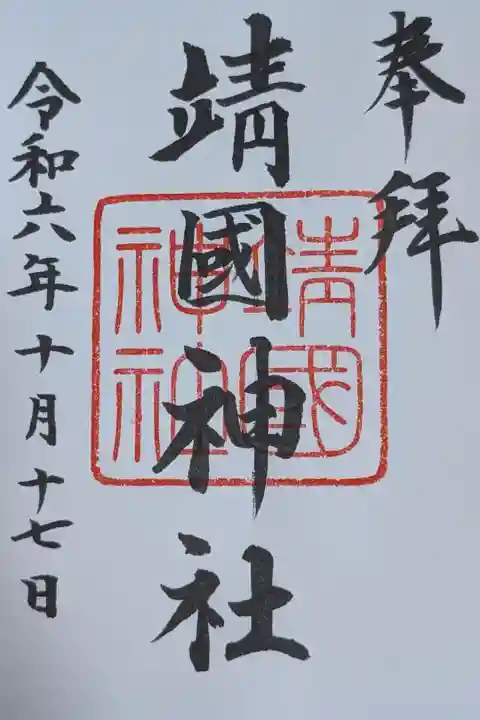 奉拜
靖國神社
靖國
神社
令和六年十月十七日